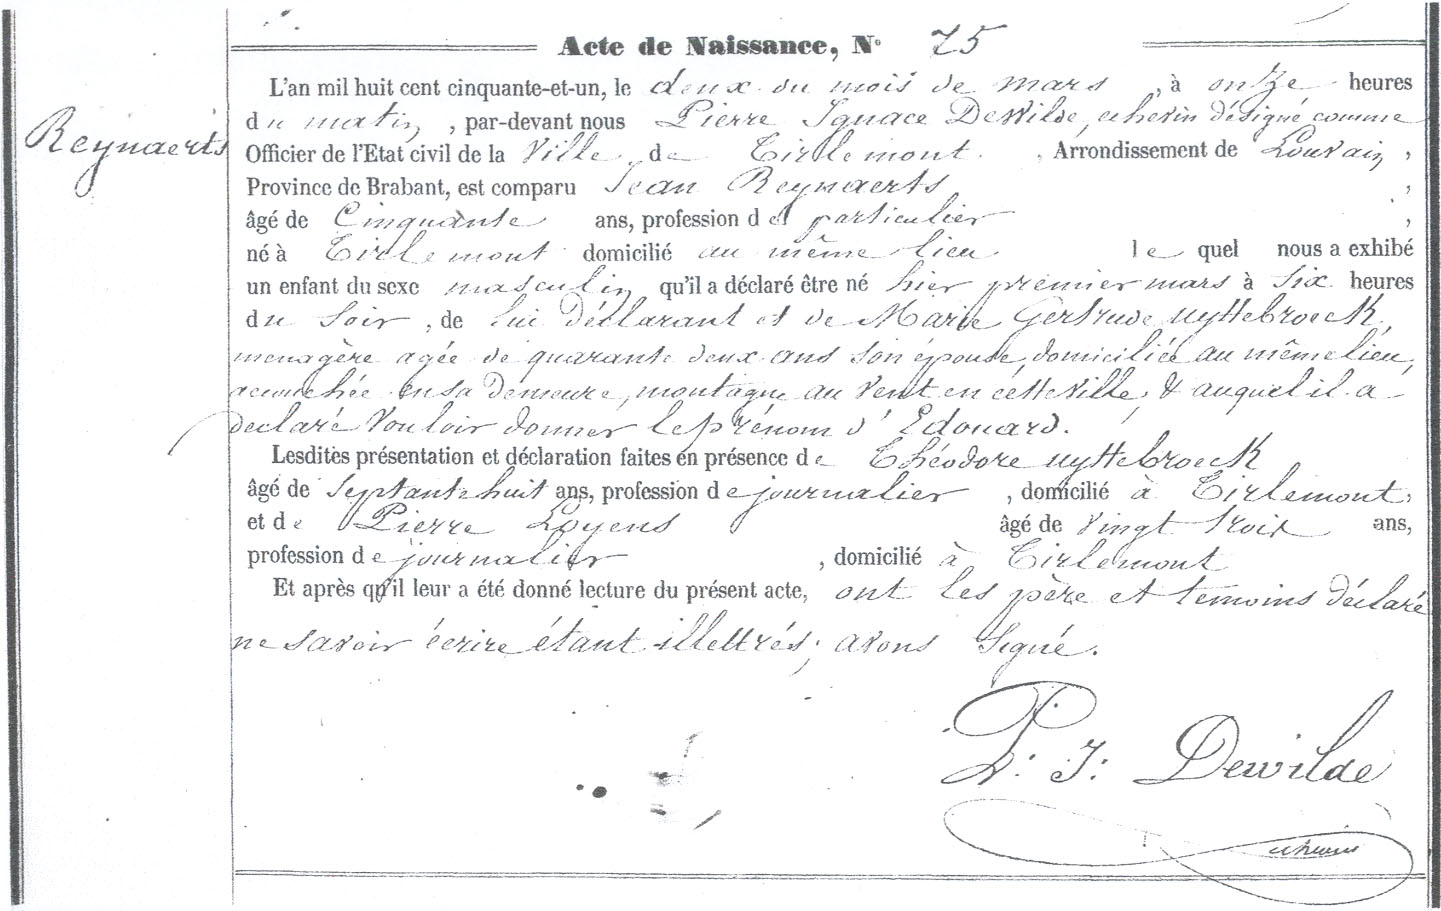 Acte de Naissance, N° 75
Reynaerts
L'an mil huit cent cinquante-et-un, le deux du mois de mars, à onze heures
du matin, par-devant nous Pierre Ignace DeWilde, echevin désigné comme
Officier de l'Etat civil de la Ville de Tirlemont, Arrondissement de Louvain,
Province de Brabant, est comparu Jean Reynaerts,
âgé de Cinquante ans, profession de particulier,
né à Tirlemont domicilié au même lieu le quel nous a exhibé
un enfant du sexe masculin qu'il a déclaré être né hier premier mars à Six heures
du Soir, de lui déclarant et de Marie Gertrude uyttebroeck,
menagère agée de quarante deux ans son épouse, domiciliée au même lieu,
accouchée en sa demeure, montagne au Vent en cette ville, & auquel il a
declaré vouloir donner le prénom d'Edouard.
Lesdites présentation et déclaration faites en présence de Théodore uyttebroeck
âgé de Septante huit ans, profession de journalier, domicilié à Tirlemont,
et de Pierre Loyens âgé de vingt trois ans,
profession de journalier, domicilié à Tirlemont
Et après qu'il leur a été donné lecture du présent acte, ont les père et temoins déclaré
ne savoir écrire étant illettrés; avons Signé.
P. I. Dewilde
echevin